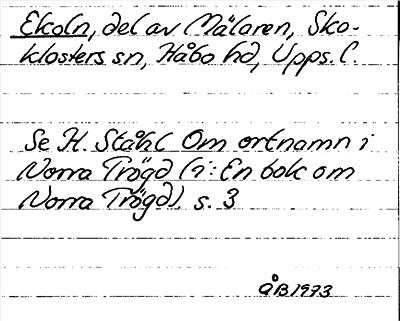 Ekoln, del av Mälaren, Sko-
klosters sn, Håbo hd, Upps. l.
Se H. Ståhl Om ortnamn i
Norra Trögd (i: En bok om
Norra Trögd), s. 3
ÅB 1973